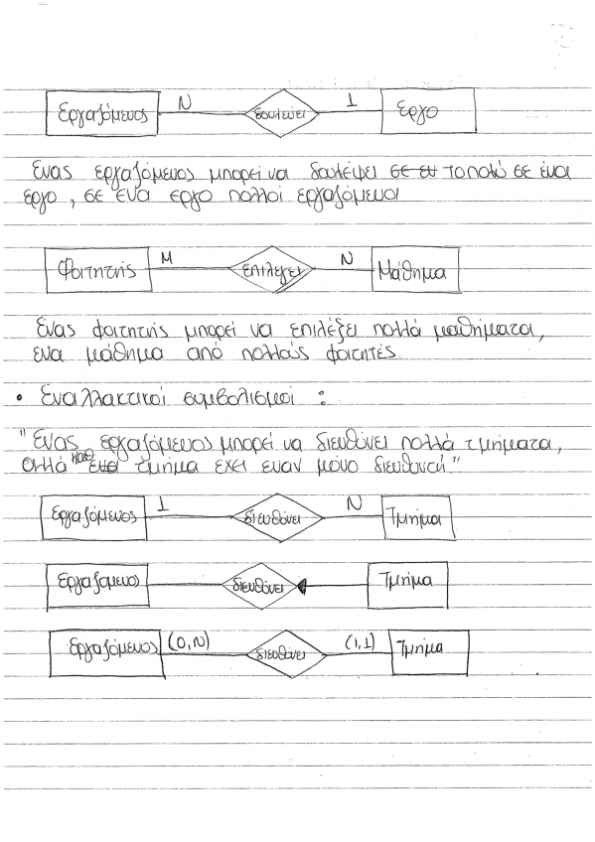 Εργαζόμενος Ν δουλεύει 1 Εργο
Ενας εργαζόμενος μπορεί να δουλέψει σε εν το πολύ σε ένα
εργο, σε ενα εργο πολλοί εργαζόμενοι
Φοιτητής Μ επιλέγει Ν Μάθημα
Ένας φοιτητής μπορεί να επιλέξει πολλά μαθήματα,
ενα μάθημα από πολλούς φοιτητές.
• Εναλλακτικοί συμβολισμοί :
"Ένας εργαζόμενος μπορεί να διευθύνει πολλά τμήματα,
αλλά καθε τμήμα εχει εναν μόνο διευθυντή."
Εργαζόμενος 1 διευθύνει Ν Τμήμα
Εργαζόμενος διευθύνει Τμήμα
Εργαζόμενος (0,Ν) διευθύνει (1,1) Τμήμα